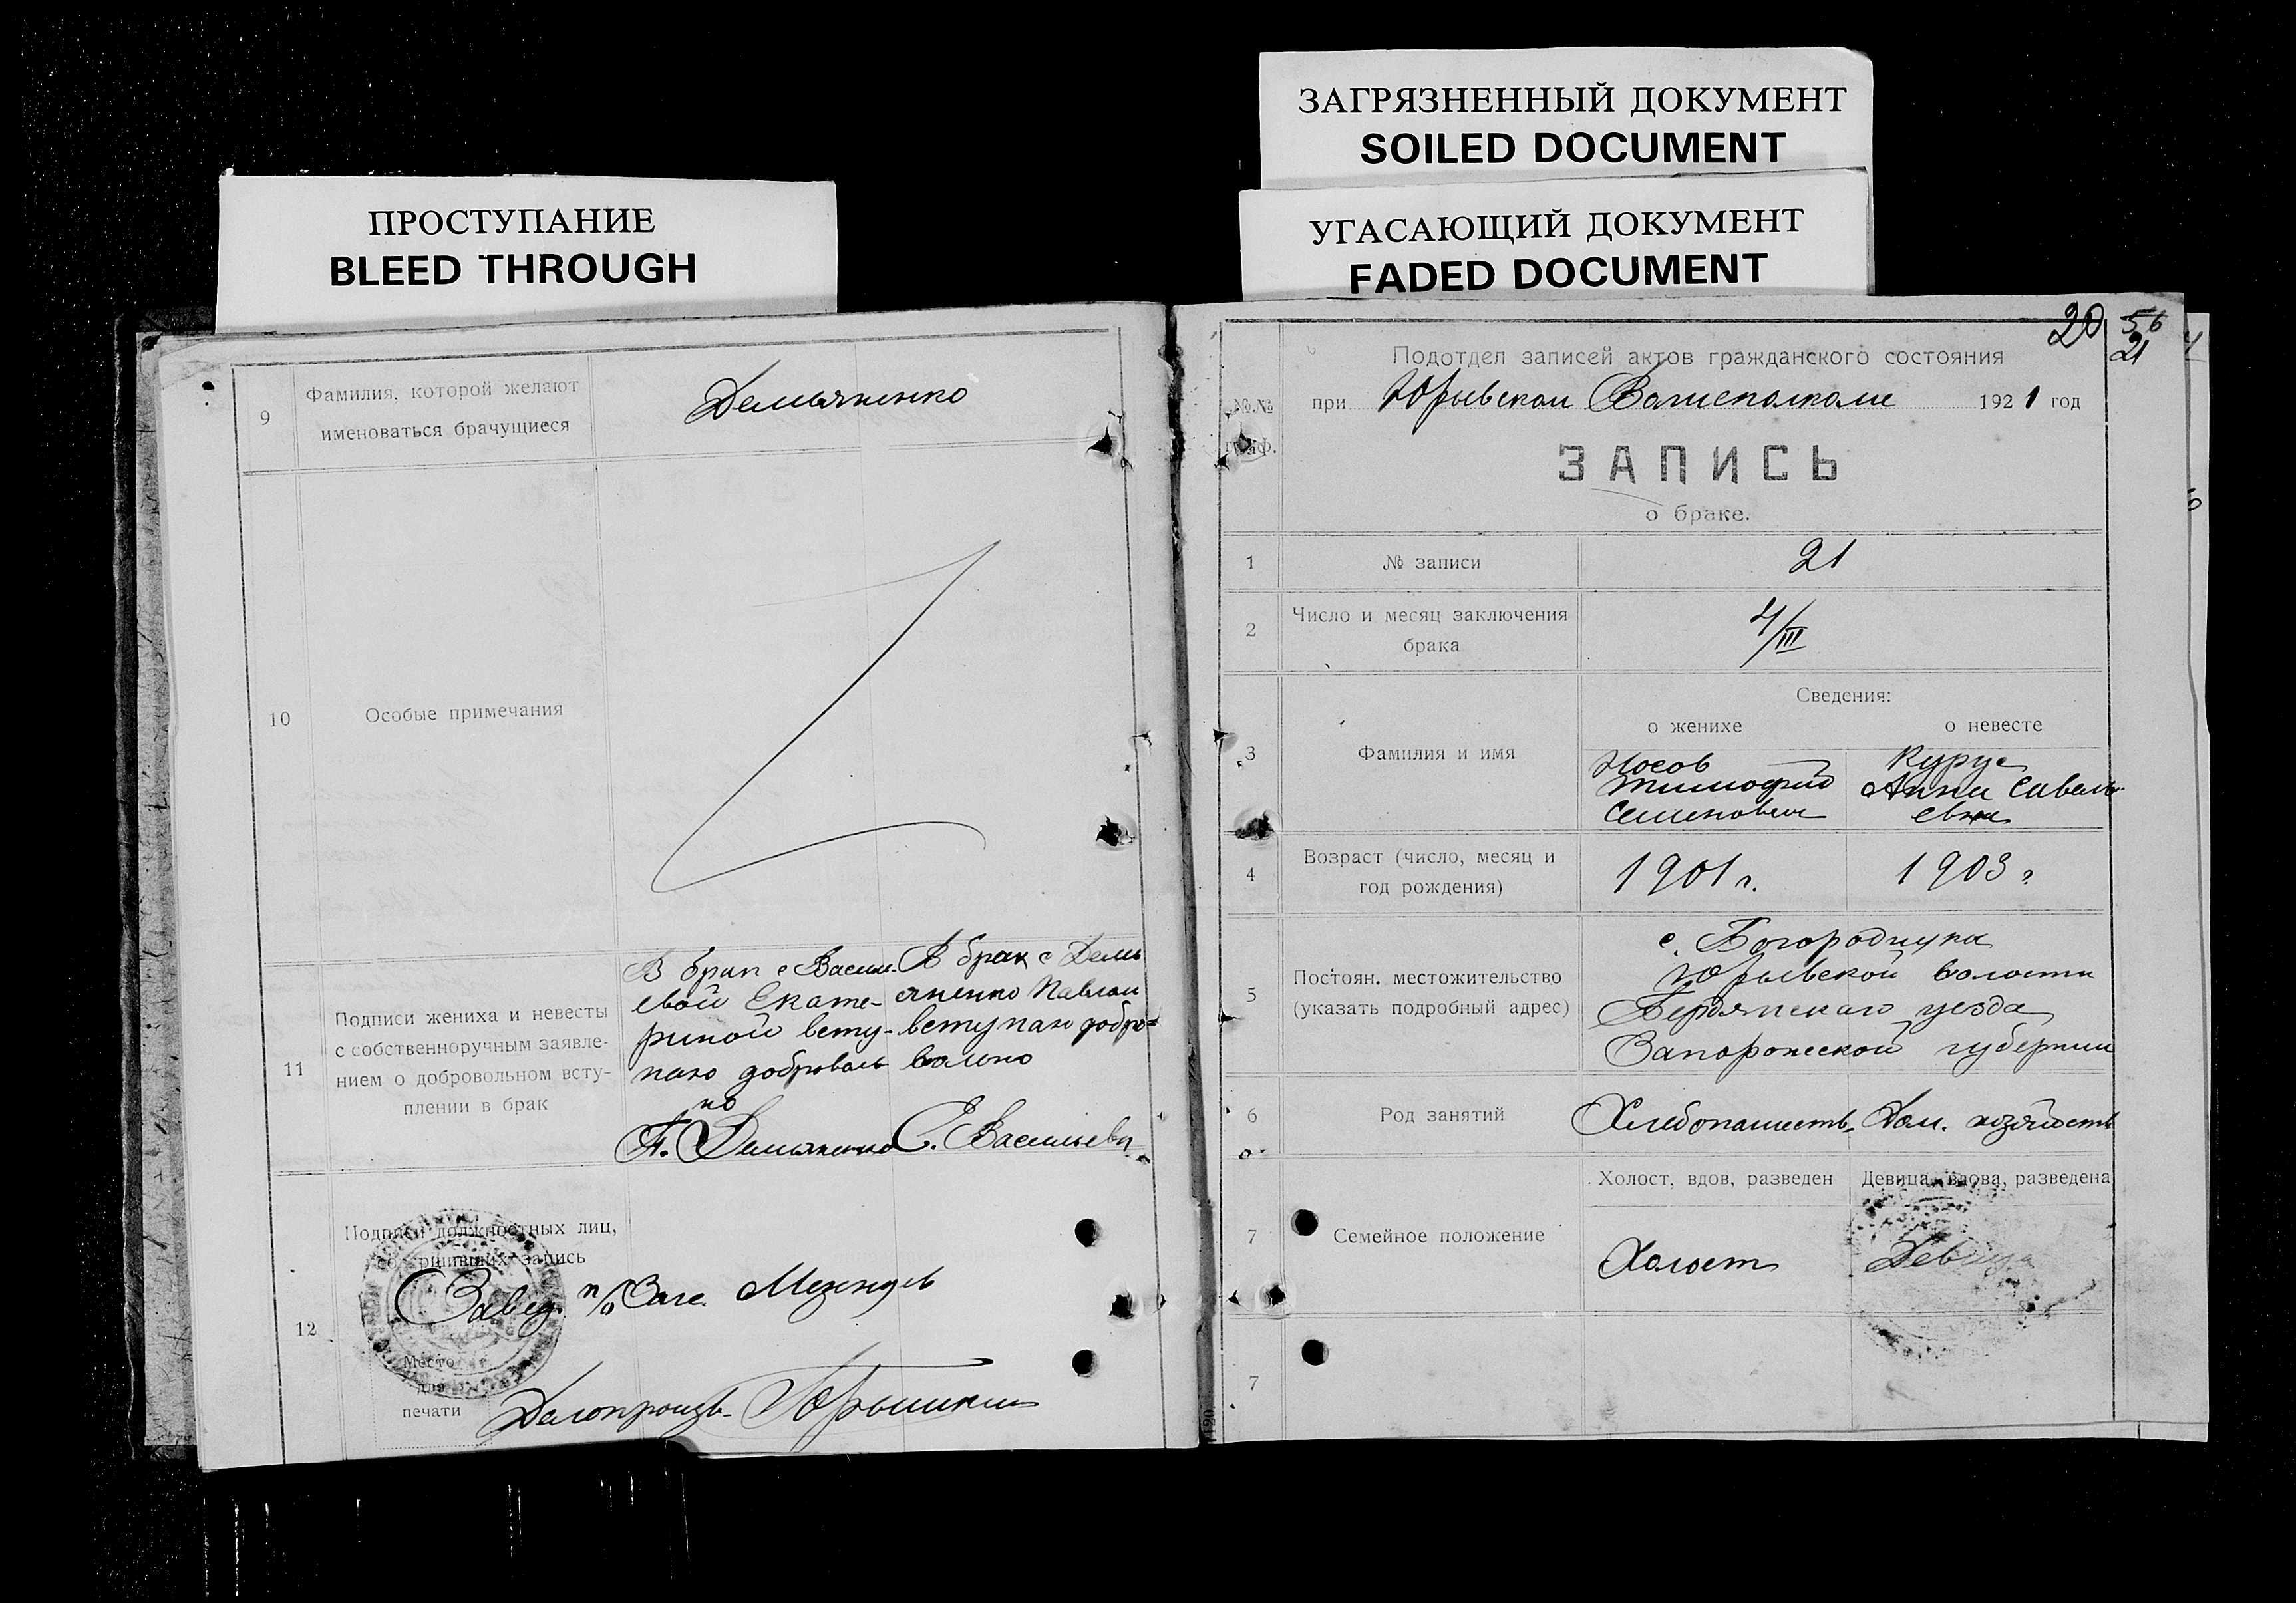 ЗАГРЯЗНЕННЫЙ ДОКУМЕНТ
SOILED DOCUMENT
УГАСАЮЩИЙ ДОКУМЕНТ
FADED DOCUMENT
ПРОСТУПАНИЕ
BLEED THROUGH
9
Фамилия, которой желают
именоваться брачущиеся
Демьяненко
10
Особые примечания
11
Подписи жениха и невесты
с собственноручным заявле-
нием о добровольном всту-
плении в брак
В брак с Василь-
евой Екате-
риной всту-
паю доброволь
но
П. Демьяненко
В брак с Демь
яненко Павлом
вступаю добро=
вольно
Е. Васильева
12
Подписи должностных лиц,
запись
Завед. п/о Загс.
Место
для
печати
Делопроизв.
20
56
21
№№
Подотдел записей актов гражданского состояния
при Юрьевском Волисполкоме 1921 год
ЗАПИСЬ
о браке.
1
№ записи
21
2
Число и месяц заключения
брака
4/III
Сведения:
о женихе
о невесте
3
Фамилия и имя
Носов
Тимофей
Семенович
Курус
Анна Савель
евна
4
Возраст (число, месяц и
год рождения)
1901 г.
1903 г
5
Постоян. местожительство
(указать подробный адрес)
с. Богородицка
Юрьевской волости
Бердянскаго уезда
Запорожской губернии
6
Род занятий
Хлебопашеств.
Дом. хозяйств
7
Семейное положение
Холост, вдов, разведен
Девица, вдова, разведена
Холост
Девица
7